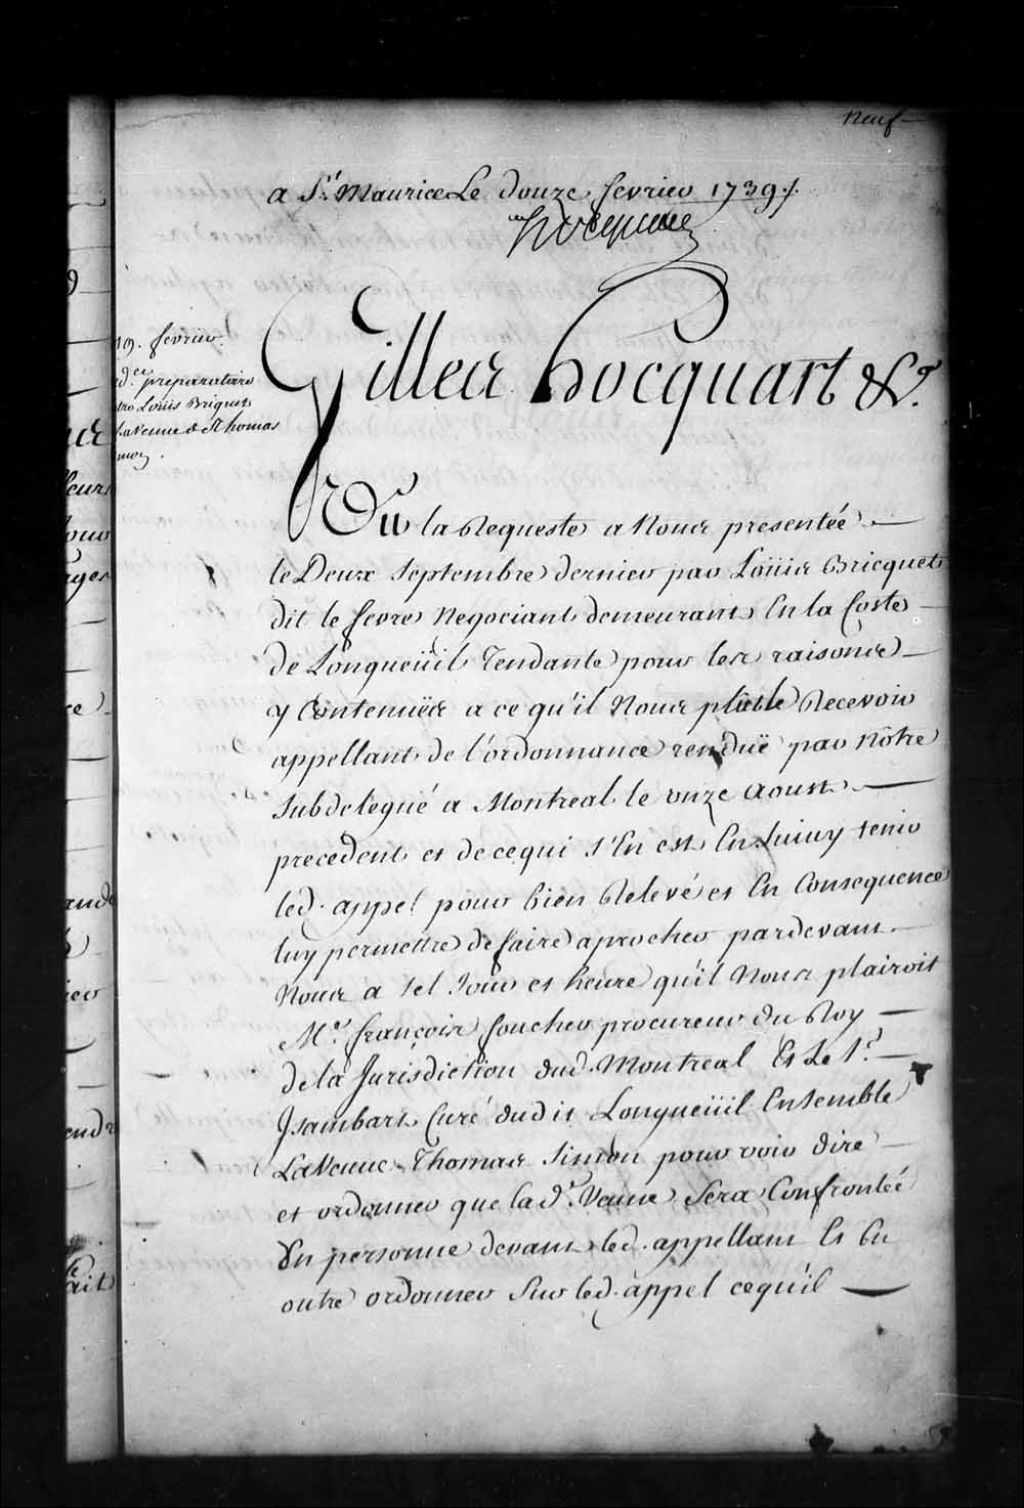 neuf
a St. Maurice Le douze fevrier 1739 ./.
hocquart
19. fevrier.
d.ce preparatoire
Louis Briquet
la Veuve de Thomas
Gilles hocquart &c.
Vû la Requeste a Nous presentée
le Deux Septembre dernier par Loüis Bricquet
dit le fevre Negociant demeurant En la Coste
de Longueüil Tendante pour les raisons
y Contenuës a ce qu'il Nous plût le Recevoir
appellant de l'ordonnance renduë par Nôtre
Subdelegué a Montreal le onze aoust
precedent et de ce qui s'En est Ensuivy tenir
led. appel pour bien Relevé et En Consequence
luy permettre de faire aprocher pardevant
Nous a tel Jour et heure qu'il Nous plairoit
Me. françois foucher procureur du Roy
de la Jurisdiction dud. Montreal Et Le Sr.
Jsambart Curé dudit Longueüil Ensemble
La Veuve Thomas Simon pour voir dire
et ordonner que la de. Veuve Sera Confrontée
En personne devant led. appellant Et En
outre ordonner Sur led. appel ce qu'il